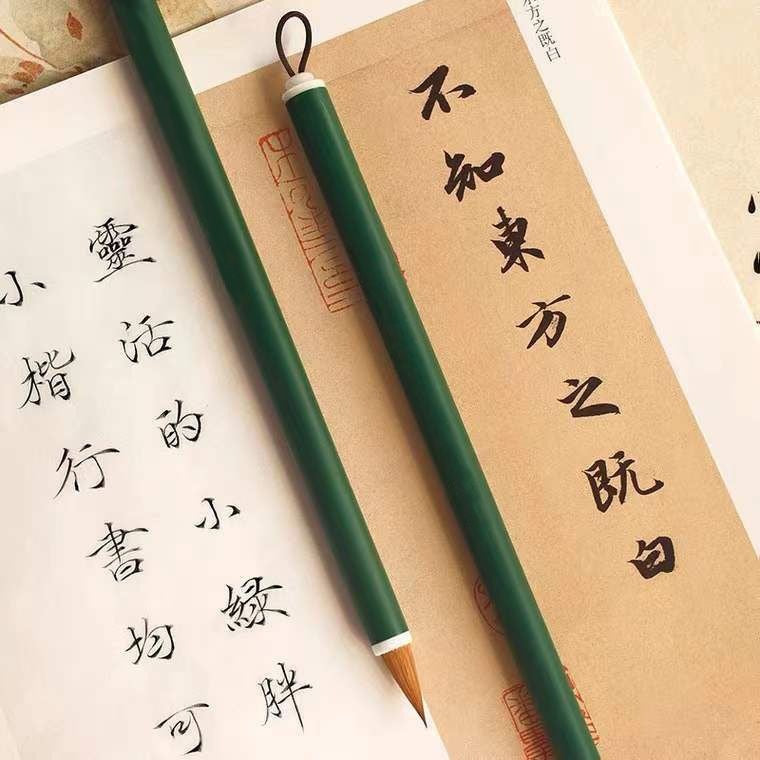 不知東方之既白
東方之既白
靈活的小綠胖
小楷行書均可